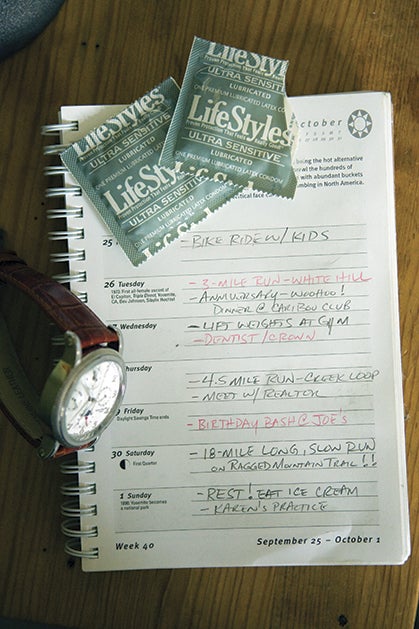 LifeStyles
Proven Protection That Feels Really Good
ULTRA SENSITIVE
LUBRICATED
ONE PREMIUM LUBRICATED LATEX CONDOM
LifeStyles
LifeStyles
Proven Protection That Feels Really Good
ULTRA SENSITIVE
LUBRICATED
ONE PREMIUM LUBRICATED LATEX CONDOM
LifeStyles
October
being the hot alternative
the hundreds of
with abundant buckets
climbing in North America.
25
- BIKE RIDE W/ KIDS
26 Tuesday
1973: First all-female ascent of
El Capitan, Triple Direct, Yosemite,
CA, Bev Johnson, Sibylle Hechtel
- 3-MILE RUN - WHITE HILL
- ANNIVERSARY - WOOHOO!
DINNER @ CARIBOU CLUB
Wednesday
- LIFT WEIGHTS AT GYM
- DENTIST/CROWN
Thursday
- 4.5 MILE RUN - CREEK LOOP
- MEET W/ REALTOR
Friday
Daylight Savings Time ends
- BIRTHDAY BASH @ JOE'S
30 Saturday
First Quarter
- 18-MILE LONG, SLOW RUN
ON RAGGED MOUNTAIN TRAIL!!
1 Sunday
1890: Yosemite becomes
a national park
- REST! EAT ICE CREAM
- KAREN'S PRACTICE
Week 40
September 25 – October 1